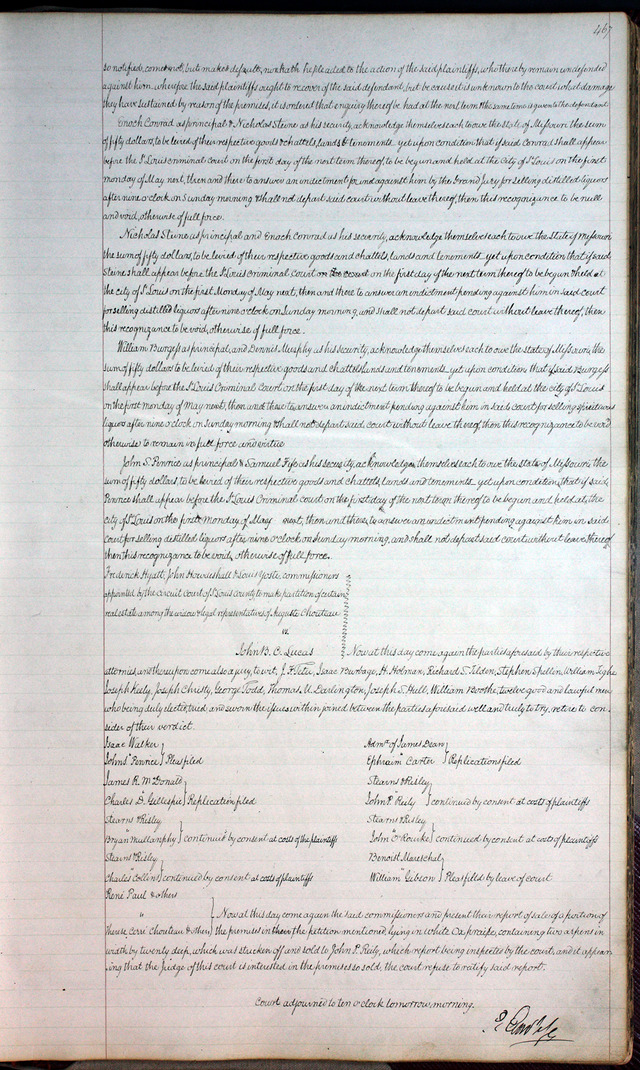 467
so notified, comes not, but makes default, nor hath he pleaded to the action of the said plaintiffs, who thereby remain undefended
against him, wherefore the said plaintiffs ought to recover of the said defendant, but because it is unknown to the court what damage
they have sustained by reason of the premises, it is ordered that enquiry thereof be had at the next term & the same time is given to the defendant.
Enoch Conrad as principal & Nicholas Steine as his security acknowledge themselves each to owe the State of Missouri the sum
of fifty dollars, to be levied of their respective goods & chattels, lands & tenements. yet upon condition that if said Conrad shall appear
before the St Louis criminal court on the first day of the next term thereof to be begun and held at the City of St Louis on the first
monday of May next, then and there to answer an indictment found against him by the Grand Jury for selling distilled liquors
after nine o'clock on Sunday morning & shall not depart said court without leave thereof, then this recognizance to be null
and void, otherwise of full force.
Nicholas Steine as principal and Enoch Conrad as his security, acknowledge themselves each to owe the State of Missouri
the sum of fifty dollars, to be levied of their respective goods and chattels, lands and tenements. yet upon condition that if said
Steine shall appear before the St Louis Criminal Court on the first day of the next term thereof to be begun & held at
the city of St Louis on the first Monday of May next, then and there to answer an indictment pending against him in said court
for selling distilled liquors after nine o'clock on Sunday morning, and shall not depart said court without leave thereof, then
this recognizance to be void, otherwise of full force.
William Burgess as principal, and Dennis Murphy as his security, acknowledge themselves each to owe the state of Missouri, the
sum of fifty dollars to be levied of their respective goods and chattels, lands and tenements. yet upon condition that if said Burgess
shall appear before the St Louis Criminal Court on the first day of the next term thereof to be begun and held at the city of St Louis
on the first monday of May next, then and there to answer an indictment pending against him in said court for selling spirituous
liquors after nine o'clock on Sunday morning & shall not depart said court without leave thereof, then this recognizance to be void
otherwise to remain in full force and virtue
John S. Pennice as principal & Samuel Fife as his security, acknowledge themselves each to owe the state of Missouri, the
sum of fifty dollars, to be levied of their respective goods and chattels, lands and tenements. yet upon condition, that if said
Pennice shall appear before the St Louis Criminal court on the first day of the next term thereof to be begun and held at, the
city of St Louis on the first monday of May next, then and there, to answer an indictment pending against him in said
Court for selling distilled liquors, after nine o'clock on Sunday morning, and shall not depart said court without leave thereof
then this recognizance to be void, otherwise of full force.
Frederick Hyatt, John Howdeshall & Louis Yoste, commissioners
appointed by the circuit court of St Louis county to make partition of certain
real estate among the widow & legal representatives of Auguste Chouteau
vs.
John B. C. Lucas } Now at this day come again the parties aforesaid by their respective
attornies, and thereupon come also a jury, to wit, Isaac Burbage, H. Holman, Richard S. Tilden, Stephen William
Joseph Kiely, Joseph Christy, George Todd, Thomas U. Darlington, Joseph S. Hull, William Boothe, twelve good and lawful men
who being duly elected, tried and sworn the issues within joined between the parties aforesaid well and truly to try, retire to con-
sider of their verdict.
Isaac Walker
John S. Pennice } Pleas filed
Admr. of James Dean
Ephraim Carter } Replications filed
James R. McDonald
Charles D. Gillespie } Replication filed
Stearns & Risley
John P. Reily } continued by consent at costs of plaintiffs
Stearns & Risley
Bryan Mullanphy } continued by consent at costs of the plaintiffs
Stearns & Risley
John O'Rourke } continued by consent at costs of plaintiffs
Stearns & Risley
Charles Collins } continued by consent at costs of plaintiffs
Benoist Mareschal
William Gibson } Pleas filed by leave of court
René Paul & others
"
Therese Cerré Chouteau & others } Now at this day come again the said commissioners and present their report of sale of a portion of
the premises in the petition mentioned, lying in White Ox prairie, containing two arpens in
width by twenty deep, which was stricken off and sold to John P. Reily, which report being inspected by the court, and it appear-
ing that the judge of this court is interested in the premises so sold, the court refuse to ratify said report.
Court adjourned to ten o'clock tomorrow morning.